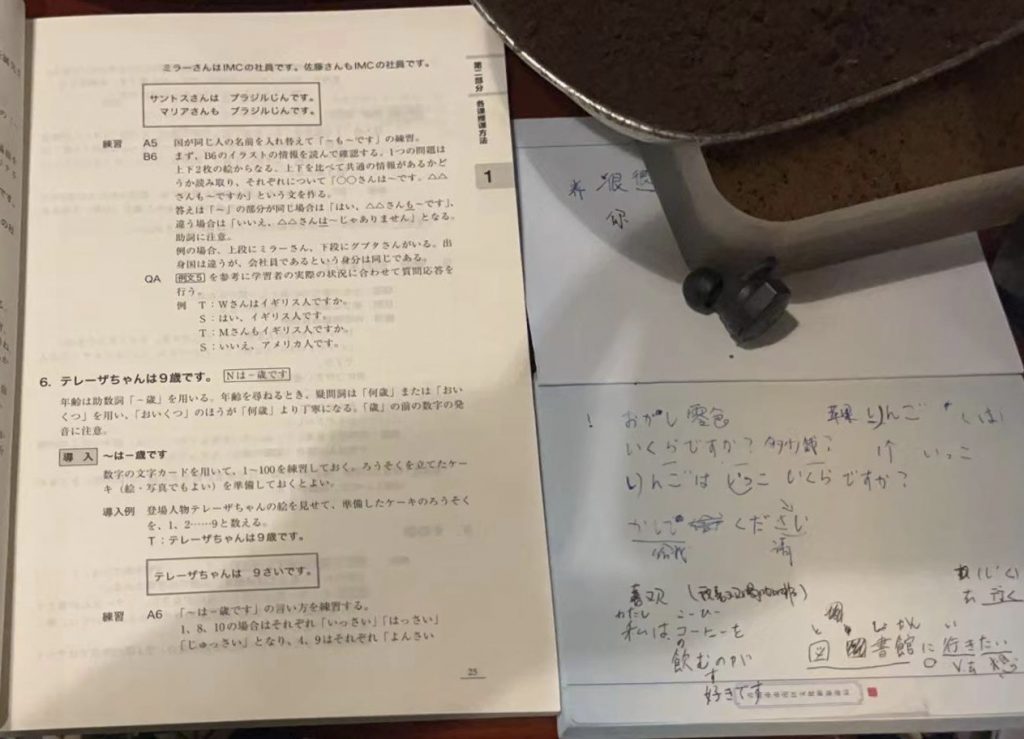 ミラーさんはIMCの社員です。佐藤さんもIMCの社員です。
サントスさんは ブラジルじんです。
マリアさんも ブラジルじんです。
練習 A5 国が同じ人の名前を入れ替えて「～も～です」の練習。
B6 まず、B6のイラストの情報を読んで確認する。1つの問題は
上下2枚の絵からなる。上下を比べて共通の情報があるかど
うか読み取り、それぞれについて「○○さんは～です。△△
さんも～ですか」という文を作る。
答えは「～」の部分が同じ場合は「はい、△△さんも～です」、
違う場合は「いいえ、△△さんは～じゃありません」となる。
助詞に注意。
例の場合、上段にミラーさん、下段にグプタさんがいる。出
身国は違うが、会社員であるという身分は同じである。
QA 例文5 を参考に学習者の実際の状況に合わせて質問応答を
行う。
例 T：Wさんはイギリス人ですか。
S：はい、イギリス人です。
T：Mさんもイギリス人ですか。
S：いいえ、アメリカ人です。
6. テレーザちゃんは9歳です。 Nは－歳です
年齢は助数詞「－歳」を用いる。年齢を尋ねるとき、疑問詞は「何歳」または「おい
くつ」を用い、「おいくつ」のほうが「何歳」より丁寧になる。「歳」の前の数字の発
音に注意。
導入 ～は－歳です
数字の文字カードを用いて、1～100を練習しておく。ろうそくを立てたケー
キ（絵・写真でもよい）を準備しておくとよい。
導入例 登場人物テレーザちゃんの絵を見せて、準備したケーキのろうそく
を、1、2……9と数える。
T：テレーザちゃんは9歳です。
テレーザちゃんは 9さいです。
練習 A6 「～は－歳です」の言い方を練習する。
1、8、10の場合はそれぞれ「いっさい」「はっさい」
「じゅっさい」となり、4、9はそれぞれ「よんさい
25
第二部分
各课授课方法
1
很
你
おかし 零食
りんご
いくらですか？
个 いっこ
りんごは いくらですか？
ください
请
喜欢
わたし コーヒー
私はコーヒーを
の
飲むのが
す
好きです
去 行く
と しょかん い
図 書館に行きたい